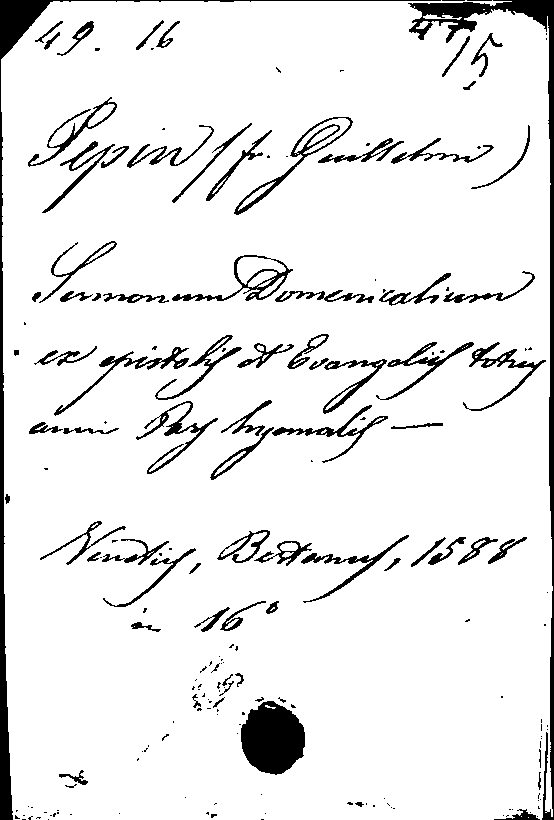 49. 16 47/5
Pepin (fr. Guillelmi)
Sermonum Domenicalium
ex epistolis et Evangeliis totius
anni Pars hyemalis —
Venetiis, Bertanus, 1588
in 16°